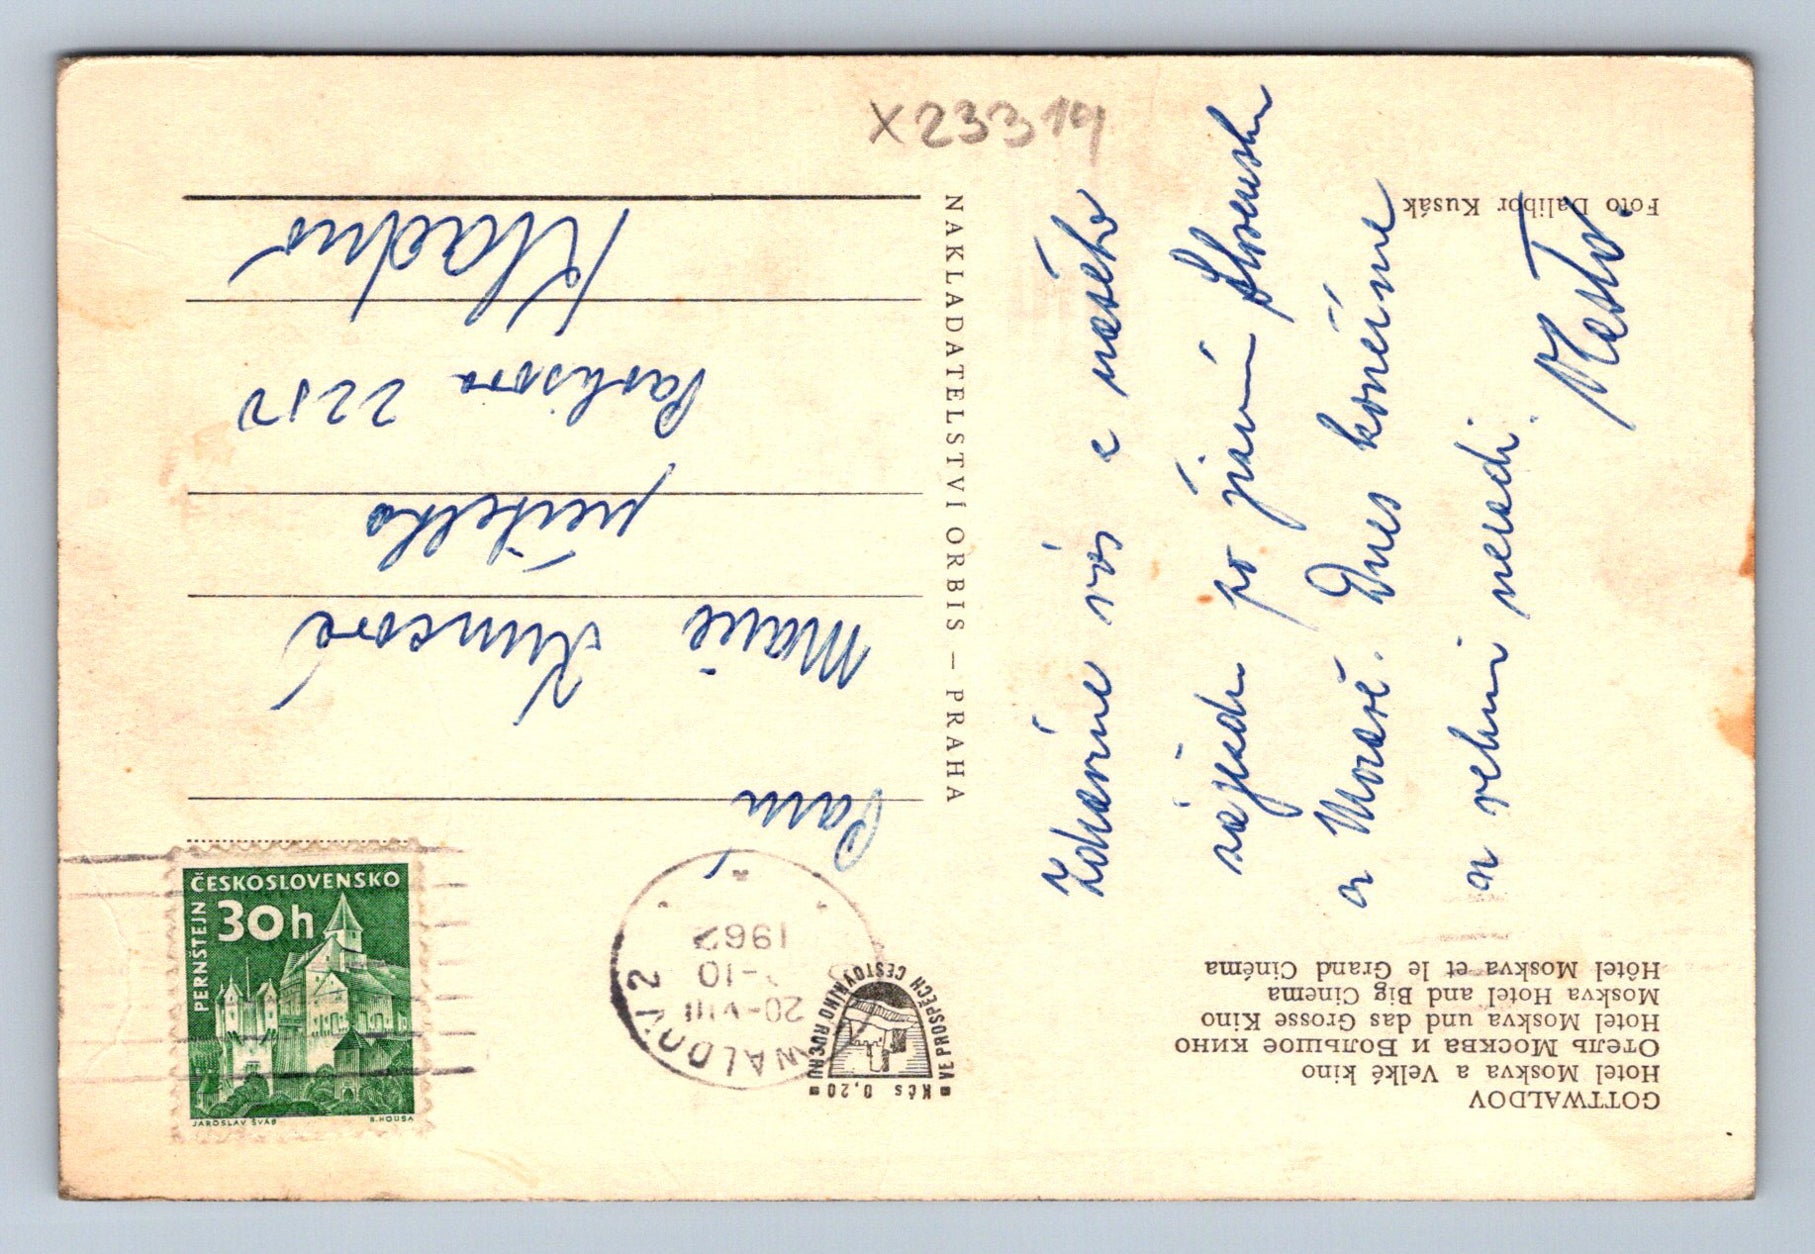 GOTTWALDOV
Hotel Moskva a Velké kino
Отель Москва и Большое кино
Hotel Moskva und das Grosse Kino
Moskva Hotel and Big Cinema
Hôtel Moskva et le Grand Cinéma
Zdravíme vás z našeho
zájezdu po jižním Slovensku
a Moravě. Dnes končíme
a velmi neradi.
Foto Dalibor Kusák
NAKLADATELSTVÍ ORBIS – PRAHA
X23319
VE PROSPĚCH CESTOVNÍHO RUCHU
Kčs 0,20
WALDOV 2
20-VIII
-10
1962
ČESKOSLOVENSKO
30h
PERNŠTEJN
JAROSLAV ŠVÁB
B. HOUSA
Paní
Marie
Kladno